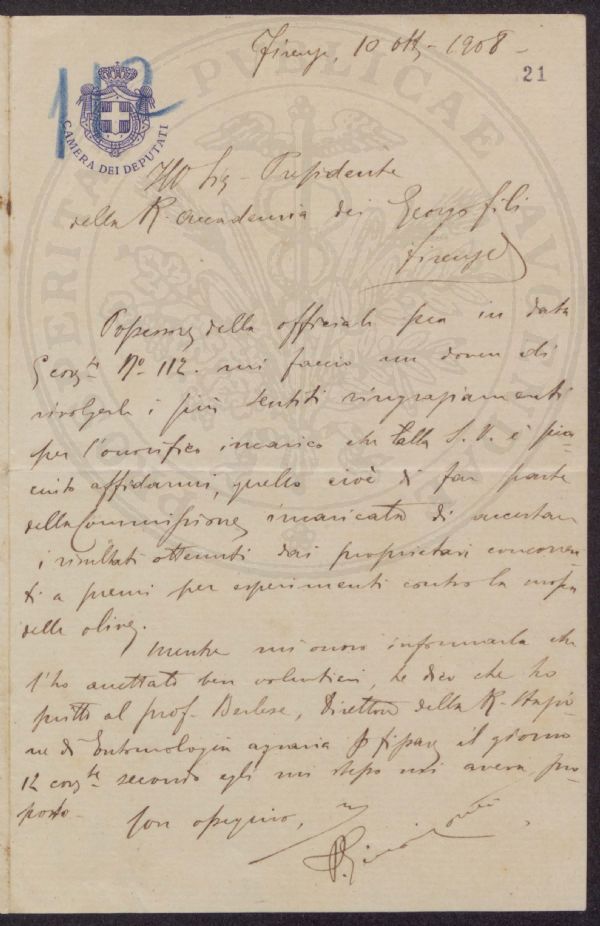 112
Firenze, 10 ott. - 1908 -
21
CAMERA DEI DEPUTATI
Ill Sig - Presidente
della R. Accademia dei Georgofili
Firenze
Possessore della officiale sua in data
N.º 112. mi faccio un dovere di
rivolgerle i più sentiti ringraziamenti
per l'onorifico incarico che alla S. V. è pia-
ciuto affidarmi, quello cioè di far parte
della Commissione incaricata di accertare
i risultati ottenuti dai proprietari concorren-
ti a premi per esperimenti contro la mosca
delle olive.
Mentre mi onoro informarla che
l'ho accettato ben volentieri, le dico che ho
scritto al prof. Berlese, Direttore della R. Stazio-
ne di Entomologia agraria il giorno
12 corr.te secondo egli mi stesso mi aveva pro-
posto.
Con ossequio,